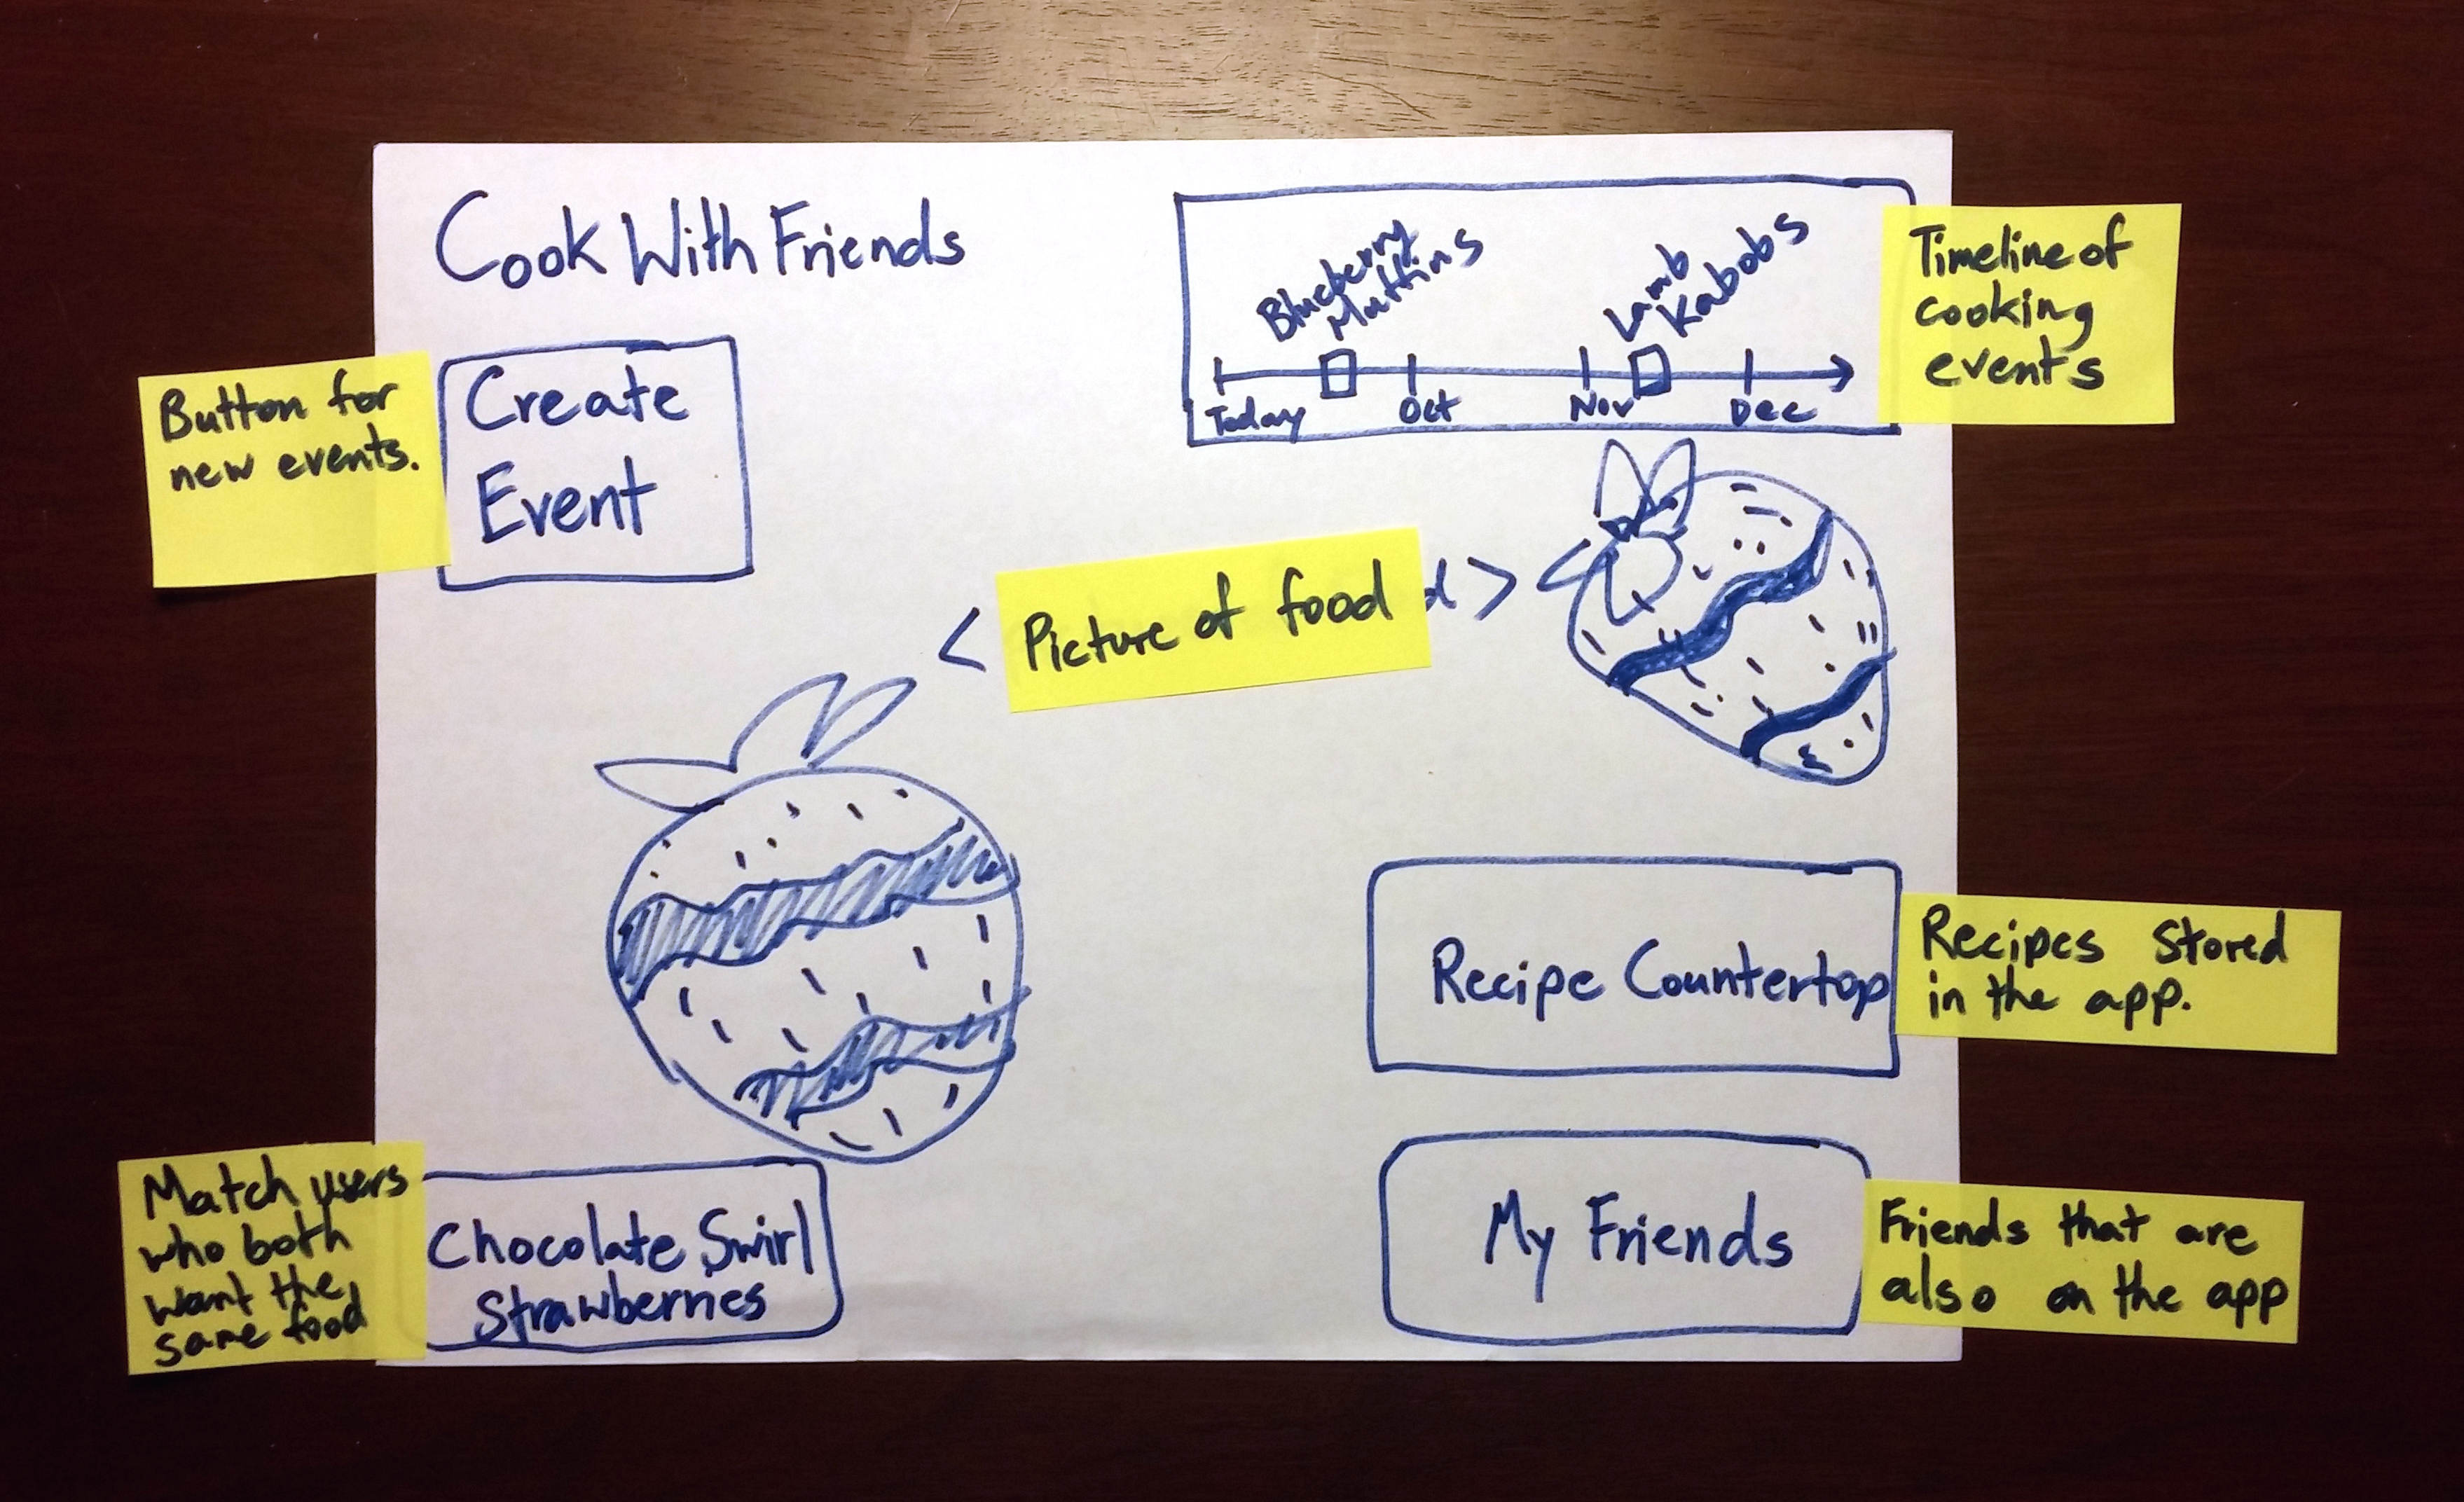 Cook With Friends
Blueberry
Muffins
Lamb
Kabobs
Today
Oct
Nov
Dec
Timeline of
cooking
events
Button for
new events.
Create
Event
< Picture of food d >
<
Recipe Countertop
Recipes Stored
in the app.
Match users
who both
want the
same food
Chocolate Swirl
Strawberries
My Friends
Friends that are
also on the app